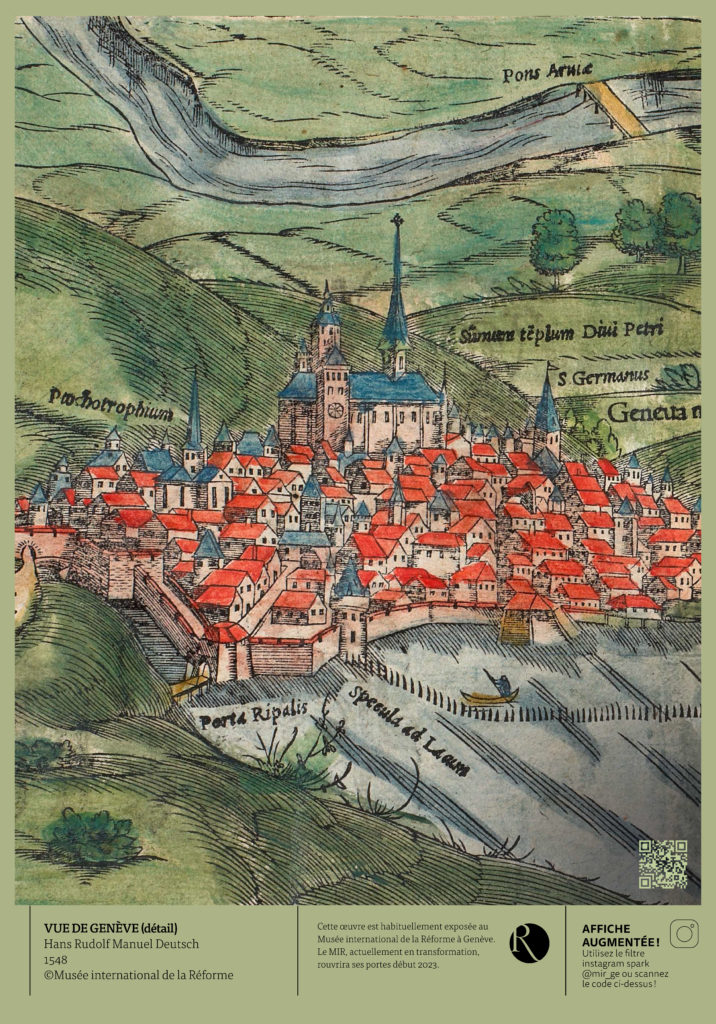 Pons Aruæ
Sũmum tẽplum Diui Petri
S Germanus
Ptochotrophium
Geneua
Porta Ripalis
Specula ad Lacum
VUE DE GENÈVE (détail)
Hans Rudolf Manuel Deutsch
1548
©Musée international de la Réforme
Cette œuvre est habituellement exposée au
Musée international de la Réforme à Genève.
Le MIR, actuellement en transformation,
rouvrira ses portes début 2023.
R
AFFICHE
AUGMENTÉE !
Utilisez le filtre
instagram spark
@mir_ge ou scannez
le code ci-dessus !